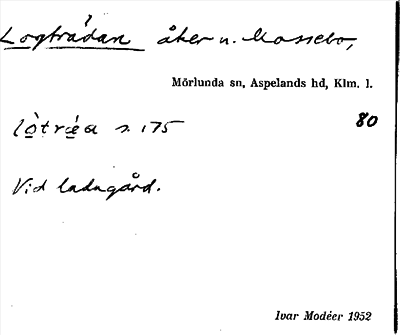 Logträdan åker u. Mossebo,
Mörlunda sn, Aspelands hd, Klm. l.
lò̱trǽ̱a s. 175 80
Vid ladugård.
Ivar Modéer 1952